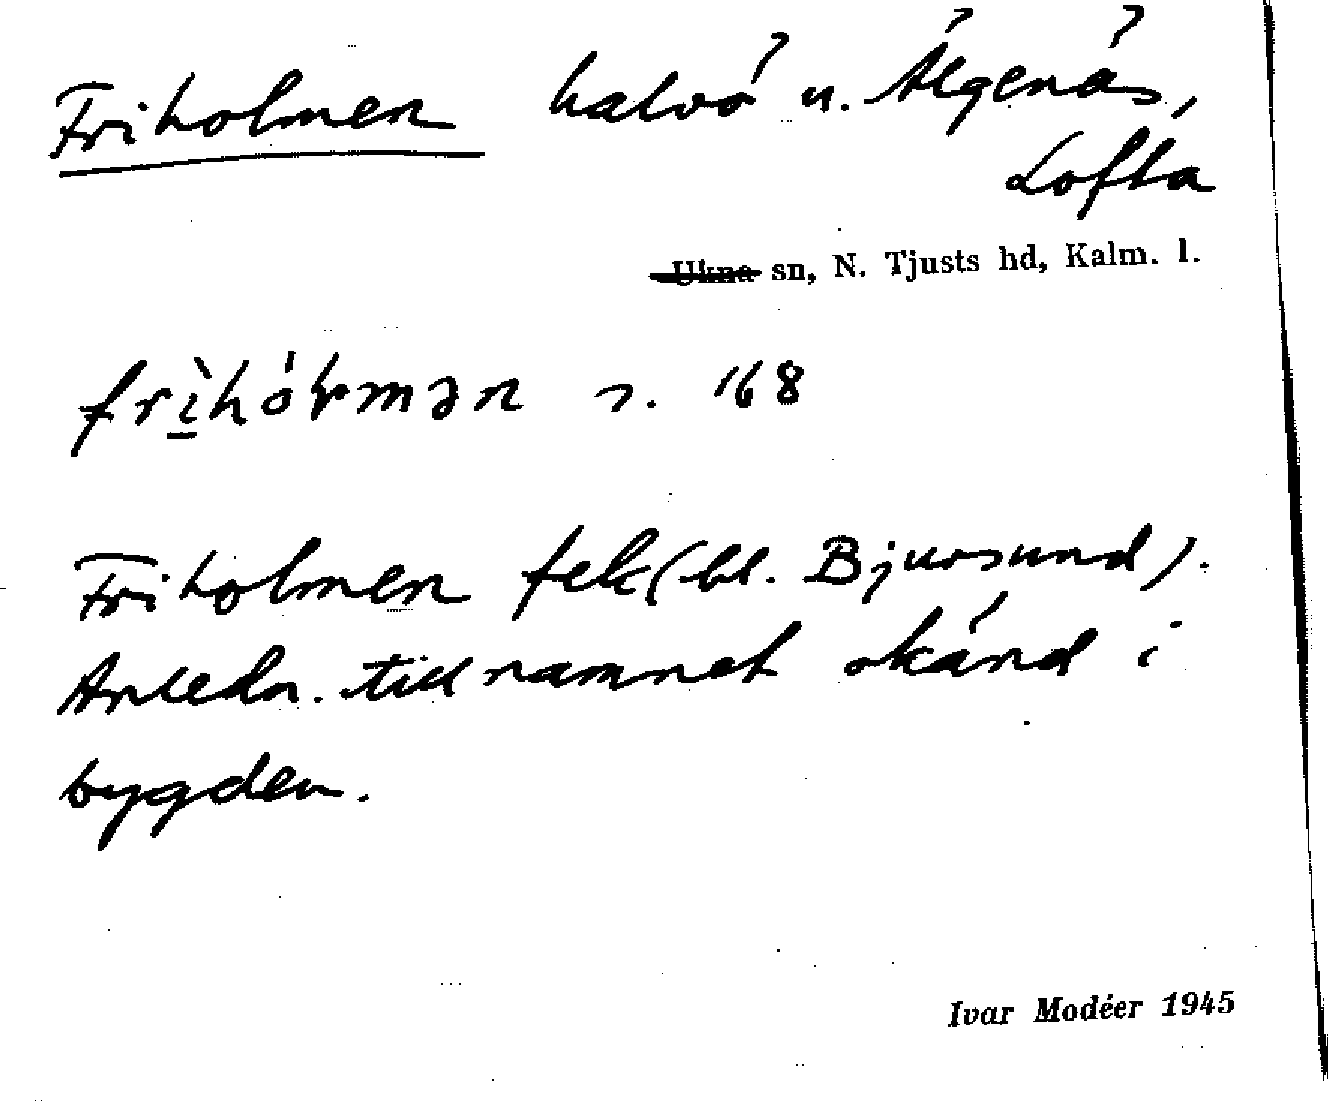 Friholmen halvö u. Älgenäs,
Lofta
Ukna sn, N. Tjusts hd, Kalm. l.
frìhóɽmən s. 168
Friholmen fek (bl. Bjursund).
Anledn. till namnet okänd i
bygden.
Ivar Modéer 1945